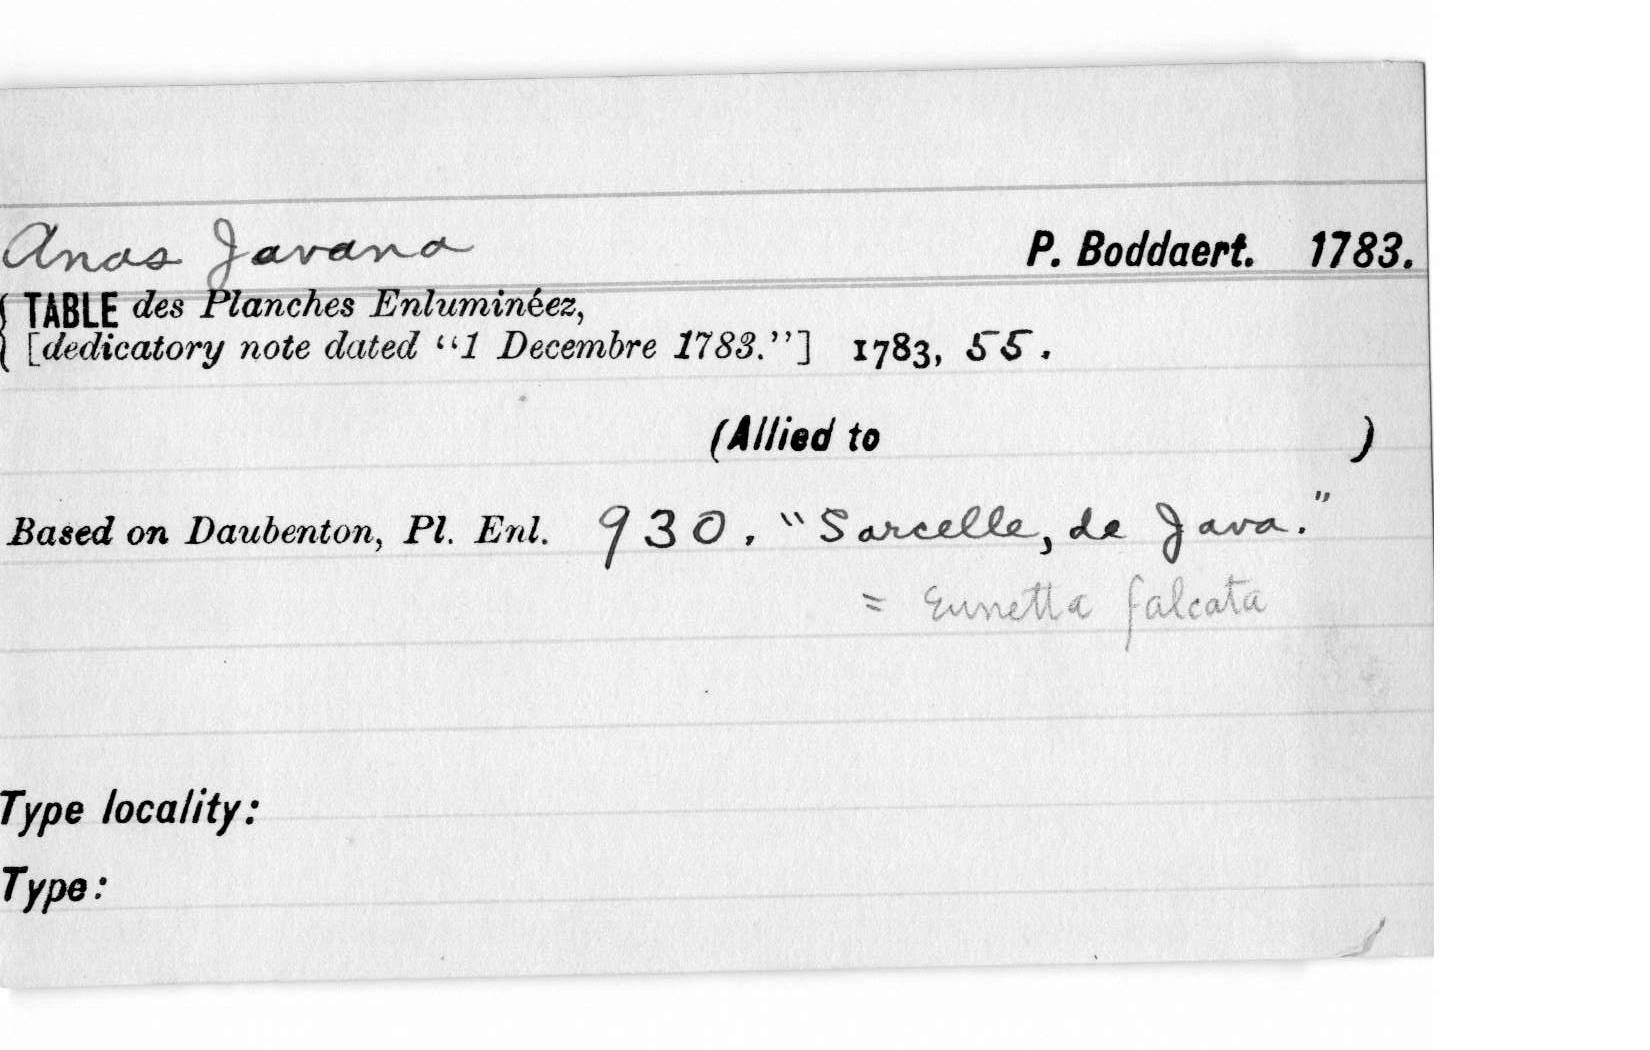 Anas Javana P. Boddaert. 1783.
TABLE des Planches Enluminéez,
[dedicatory note dated “1 Decembre 1783.”] 1783, 55.
(Allied to )
Based on Daubenton, Pl. Enl. 930. "Sarcelle, de Java."
= Eunetta falcata
Type locality:
Type: